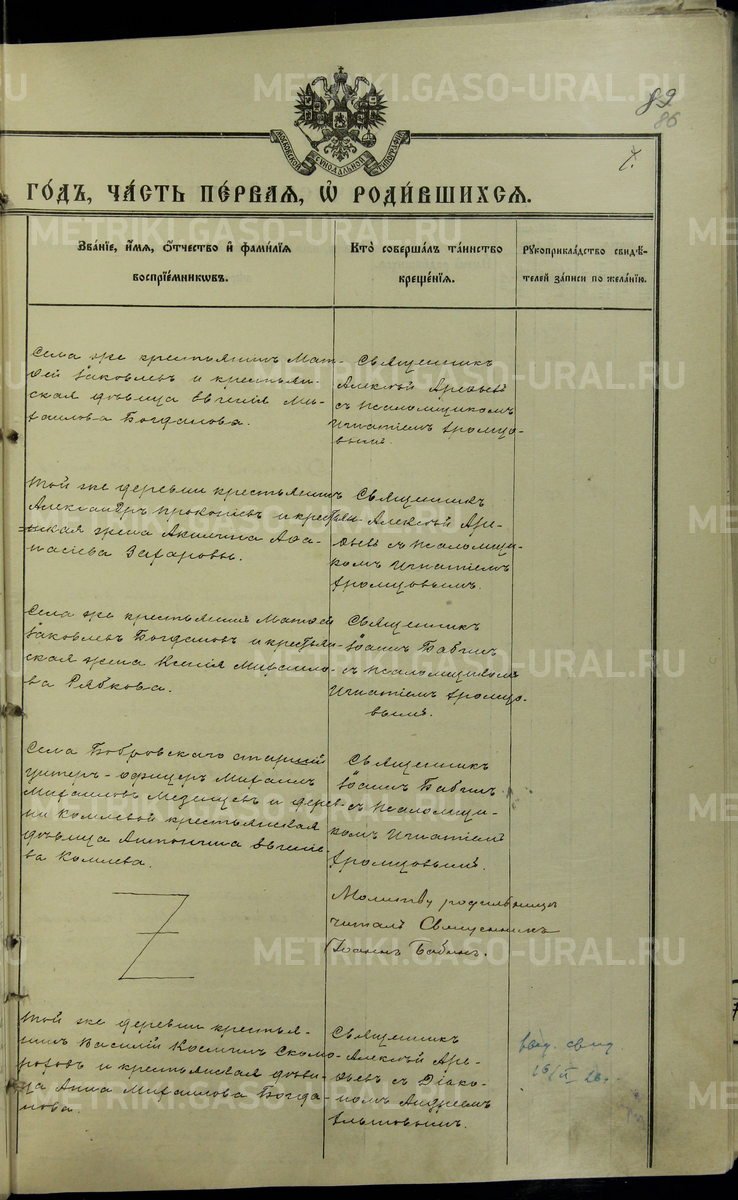 METRIKI.GASO-URAL.RU
89
86
7.
МОСКОВСКОЙ СѴНОДАЛЬНОЙ ТИПОГРАФІИ
ГОДЪ, ЧАСТЬ ПЕРВАЯ, Ѡ РОДИВШИХСЯ.
Званіе, имя, отчество и фамилія
воспріемниковъ.
Кто совершалъ таинство
крещенія.
Рукоприкладство свидѣ-
телей записи по желанію.
Села же крестьянинъ Мат-
ѳей Яковлевъ и крестьян-
ская дѣвица Евгенія Ми-
хаилова Богданова.
Священникъ
Алексѣй Арефьевъ
съ псаломщикомъ
Игнатіемъ
Той же деревни крестьянинъ
Александръ Прокопіевъ и крестьян-
ская жена Акилина Аѳа-
насіева Захаровы.
Священникъ
Алексѣй Аре-
фьевъ съ псаломщи-
комъ Игнатіемъ
Села же крестьянинъ Матѳей
Яковлевъ Богдановъ и крестьян-
ская жена Ксенія Михаило-
ва Рябкова.
Священникъ
Іоаннъ Бабинъ
съ псаломщикомъ
Игнатіемъ
Села Бобровскаго старшій
унтеръ-офицеръ Михаилъ
Михаиловъ Мезенцевъ и дерев-
ни Комлевой крестьянская
дѣвица Антонина Евгеніе-
ва Комлева.
Священникъ
Іоаннъ Бабинъ
съ псаломщи-
комъ Игнатіемъ
Молитву родильницы
читалъ Священникъ
Іоаннъ Бабинъ.
Той же деревни крестья-
нинъ Василій Косминъ Скомо-
роховъ и крестьянская дѣви-
ца Анна Михаилова Богда-
нова.
Священникъ
Алексѣй Аре-
фьевъ съ Діако-
номъ Андреемъ
выд. свид